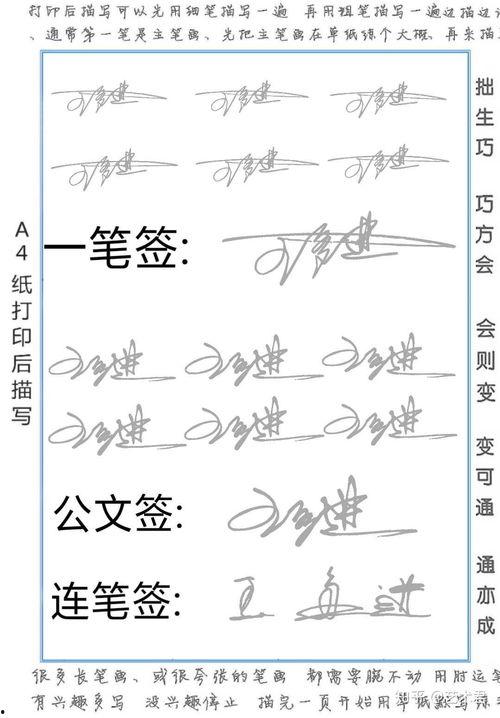 打印后描写可以先用细笔描写一遍 再用粗笔描写一遍边描边
、通常第一笔是主笔画、先把主笔画在草纸练个大概、再来描
A4纸打印后描写
一笔签:
公文签:
连笔签:
王 进
拙生巧 巧方会 会则变 变可通 通亦成
很多长笔画、或很夸张的笔画 都需要腕不动 用肘运笔
有兴趣多写 没兴趣停止 描完一页开始用草纸默写
知乎